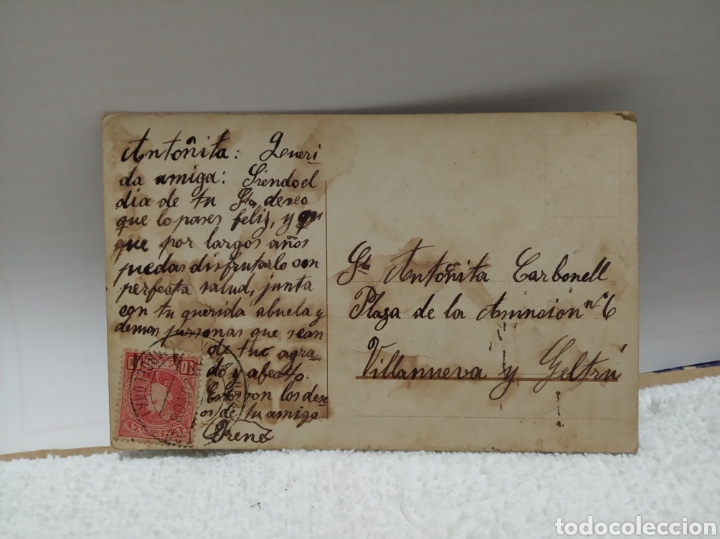 Antoñita: Queri
da amiga: Siendo el
dia de tu Sto, deseo
que lo pases feliz, y
que por largos años
puedas disfrutarlo con
perfecta salud, junta
con tu querida abuela y
demas personas que sean
de tu agra
do y afecto.
Estos son los dese
os de tu amiga
Irene
Sta Antoñita Carbonell
Plaza de la Asuncion nº 6
Villanueva y Geltrú
todocoleccion